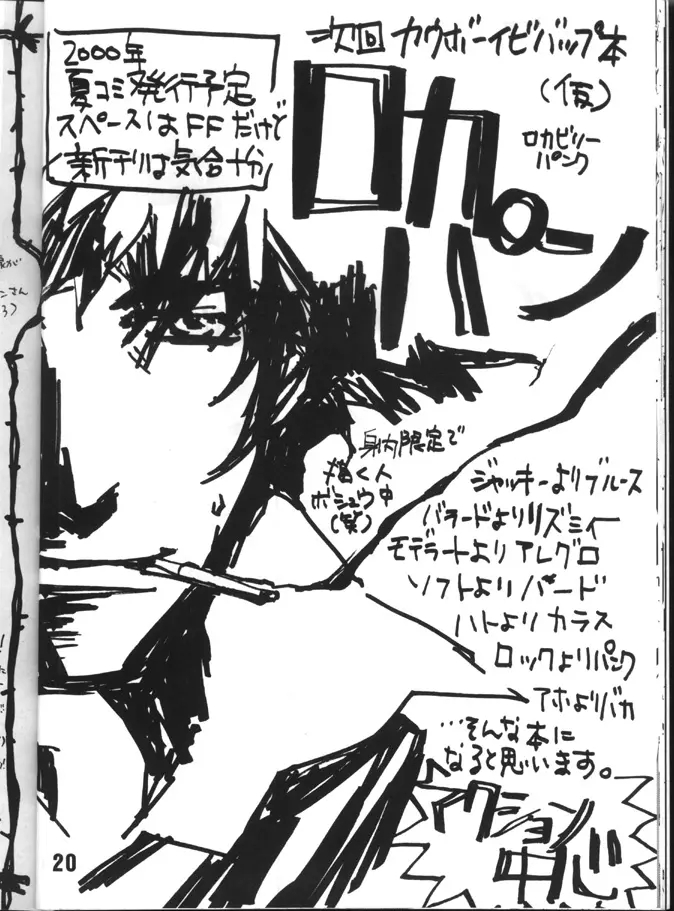 次回 カウボーイビバップ本
(仮)
ロカビリー
パンク
ロカパン
2000年
夏コミ発行予定
スペースはFFだけど
新刊は気合十分
身内限定で
描く人
ボシュウ中
(笑)
ジャッキーよりブルース
バラードよりリズミィー
モデラートよりアレグロ
ソフトよりハード
ハトよりカラス
ロックよりパンク
アホよりバカ
…そんな本に
なると思います。
アクション
中心
20